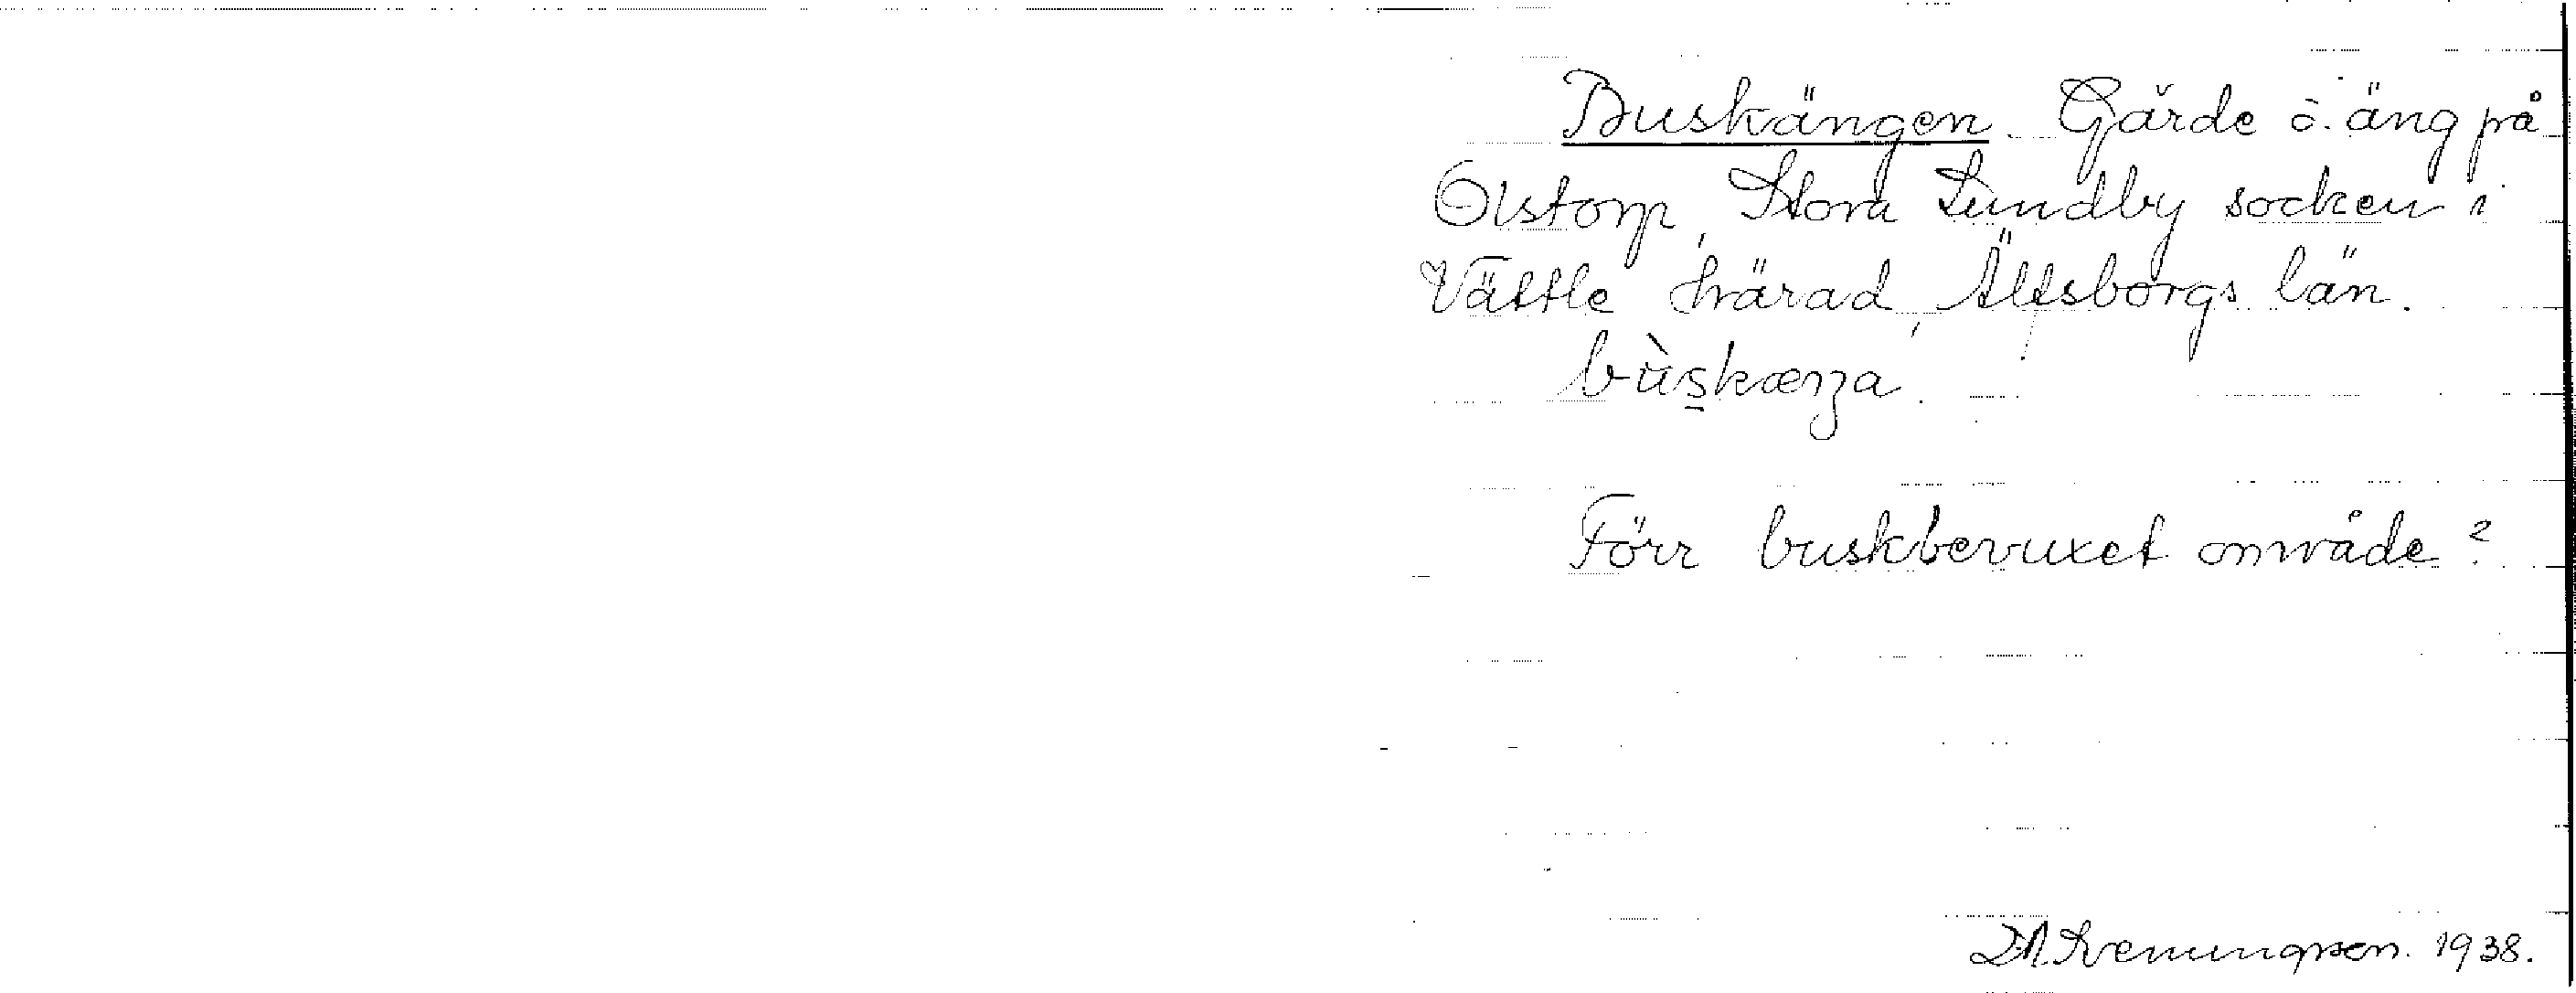 Buskängen. Gärde o. äng på
Olstorp, Stora Lundby socken i
Vättle härad, Älfsborgs län.
bùskænga.
Förr buskbevuxet område?
D.A. Svenungsson. 1938.